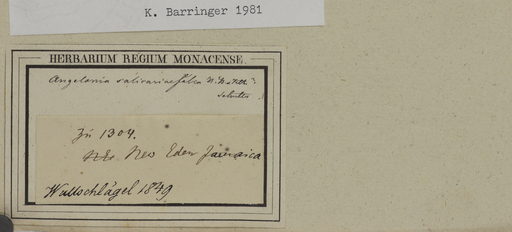 K. Barringer 1981
HERBARIUM REGIUM MONACENSE.
Angelonia salicariaefolia
Zu 1304.
New Eden Jamaica
Wullschlägel 1849